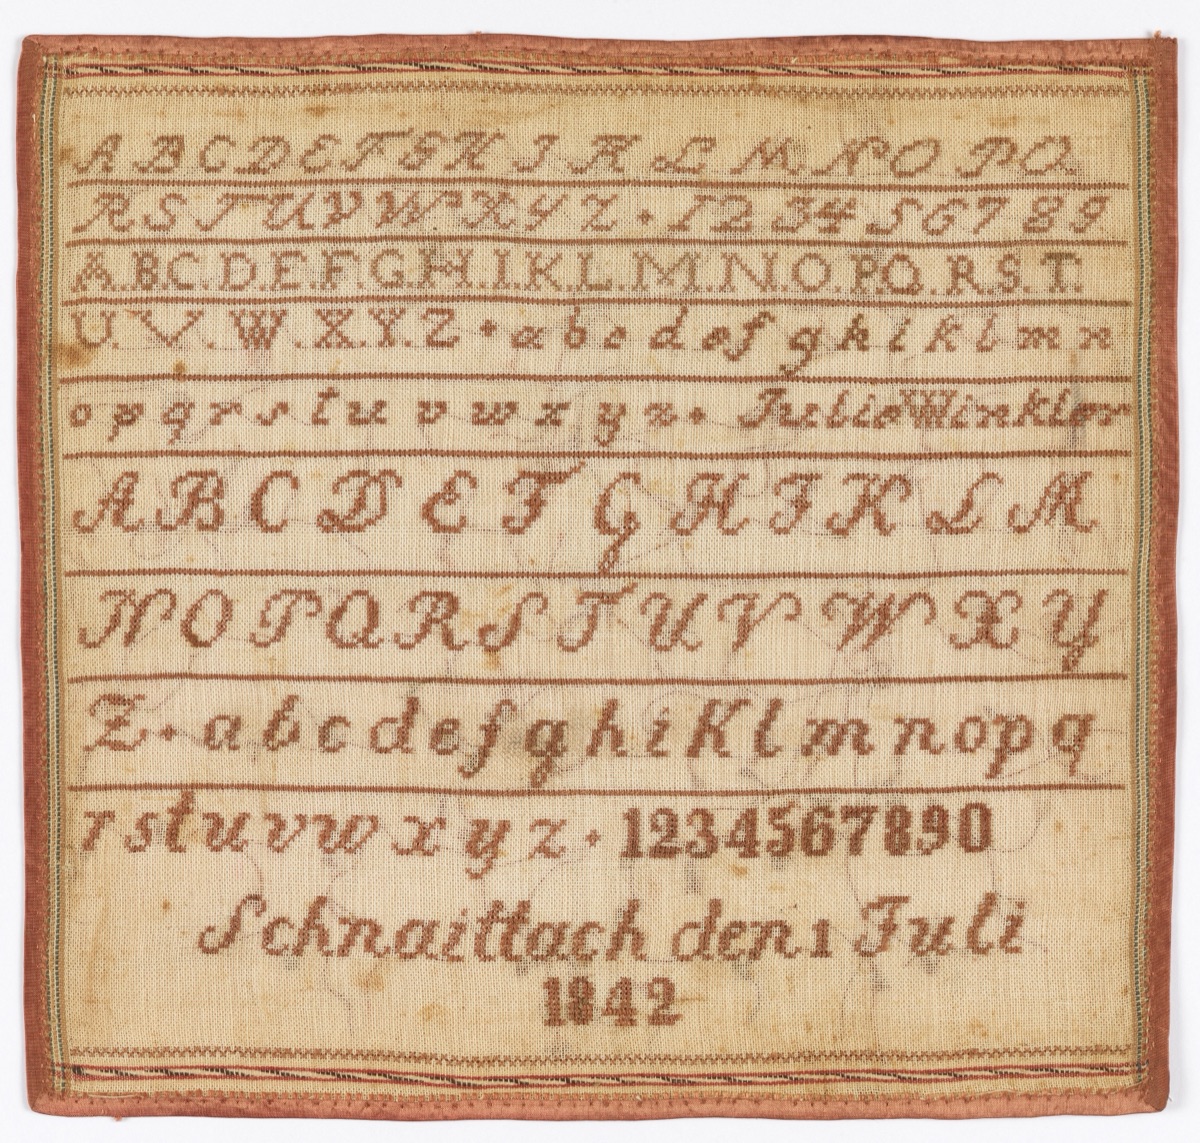 A B C D E F G H I K L M N O P Q
R S T U V W X Y Z + 1 2 3 4 5 6 7 8 9
A.B.C.D.E.F.G.H.I.K.L.M.N.O.P.Q.R.S.T.
U.V.W.X.Y.Z + a b c d e f g h i k l m n
o p q r s t u v w x y z + Julie Winkler
A B C D E F G H J K L M
N O P Q R S T U V W X Y
Z + a b c d e f g h i K l m n o p q
r s t u v w x y z + 1234567890
Schnaittach den 1 Juli
1842